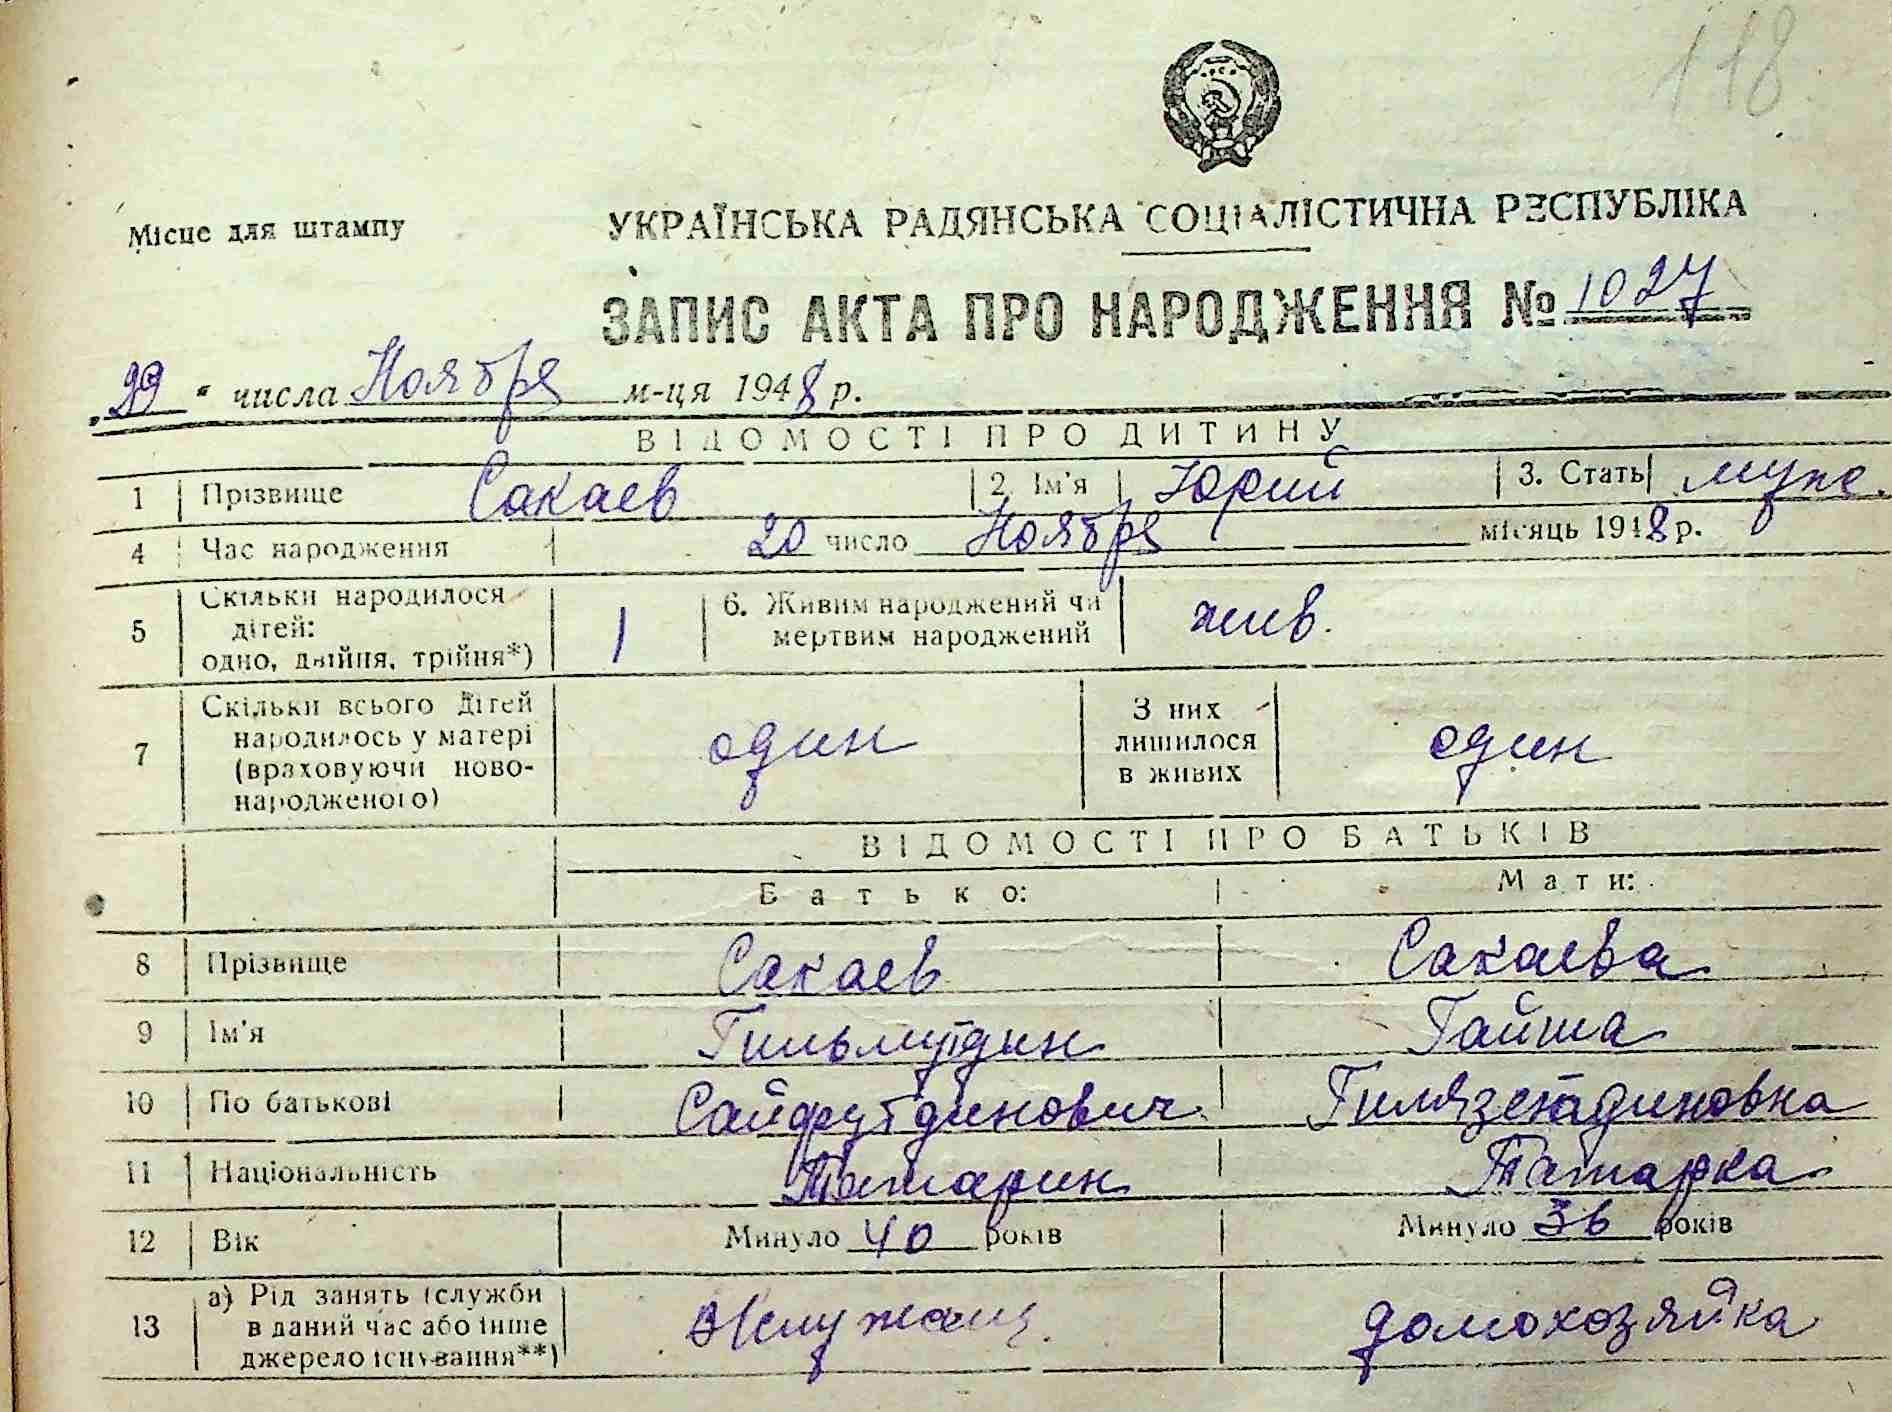 118
Місце для штампу
УКРАЇНСЬКА РАДЯНСЬКА СОЦІАЛІСТИЧНА РЕСПУБЛІКА
ЗАПИС АКТА ПРО НАРОДЖЕННЯ № 1027
„29" числа Ноября м-ця 1948 р.
ВІДОМОСТІ ПРО ДИТИНУ
1 Прізвище Сакаев 2. Ім'я Юрий 3. Стать муж.
4 Час народження 20 число Ноября місяць 1948 р.
5 Скільки народилося дітей: одно, двійня, трійня*) 1 6. Живим народжений чи мертвим народжений жив.
7 Скільки всього дітей народилось у матері (враховуючи новонародженого) один З них лишилося в живих один
ВІДОМОСТІ ПРО БАТЬКІВ
Батько: Мати:
8 Прізвище Сакаев Сакаева
9 Ім'я Гильмутдин Гайша
10 По батькові Сайфутдинович
11 Національність Татарин Татарка
12 Вік Минуло 40 років Минуло 36 років
13 а) Рід занять (служби в даний час або інше джерело існування**) домохозяйка